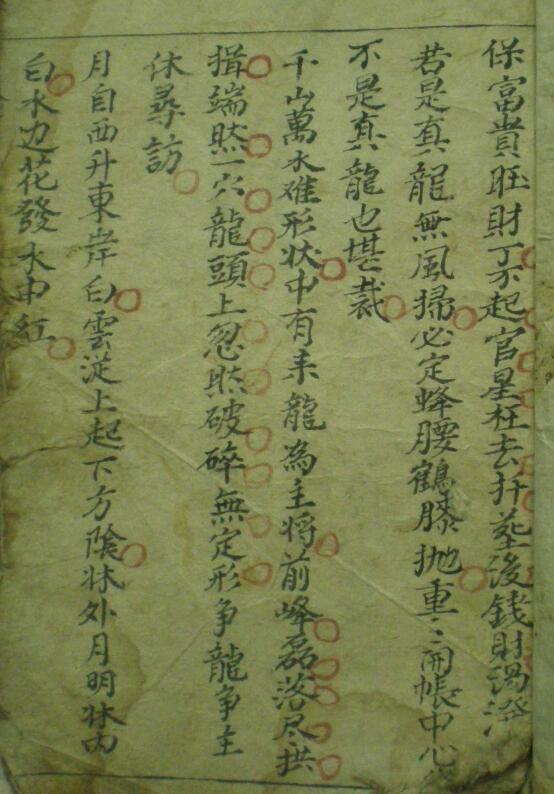 保富貴旺財丁不起官星枉去扦塟後錢財濁潑
若是真龍無風掃必定蜂腰鶴膝抛重〻開帳中心
不是真龍也堪裁
千山萬水难形状中有来龍為主将前峰磊落尽拱
揖端然一穴龍頭上忽然破碎無定形争龍争主
休尋訪
月自西升東岸白雲従上起下方陰牀外月明牀内
白水边花發水中紅